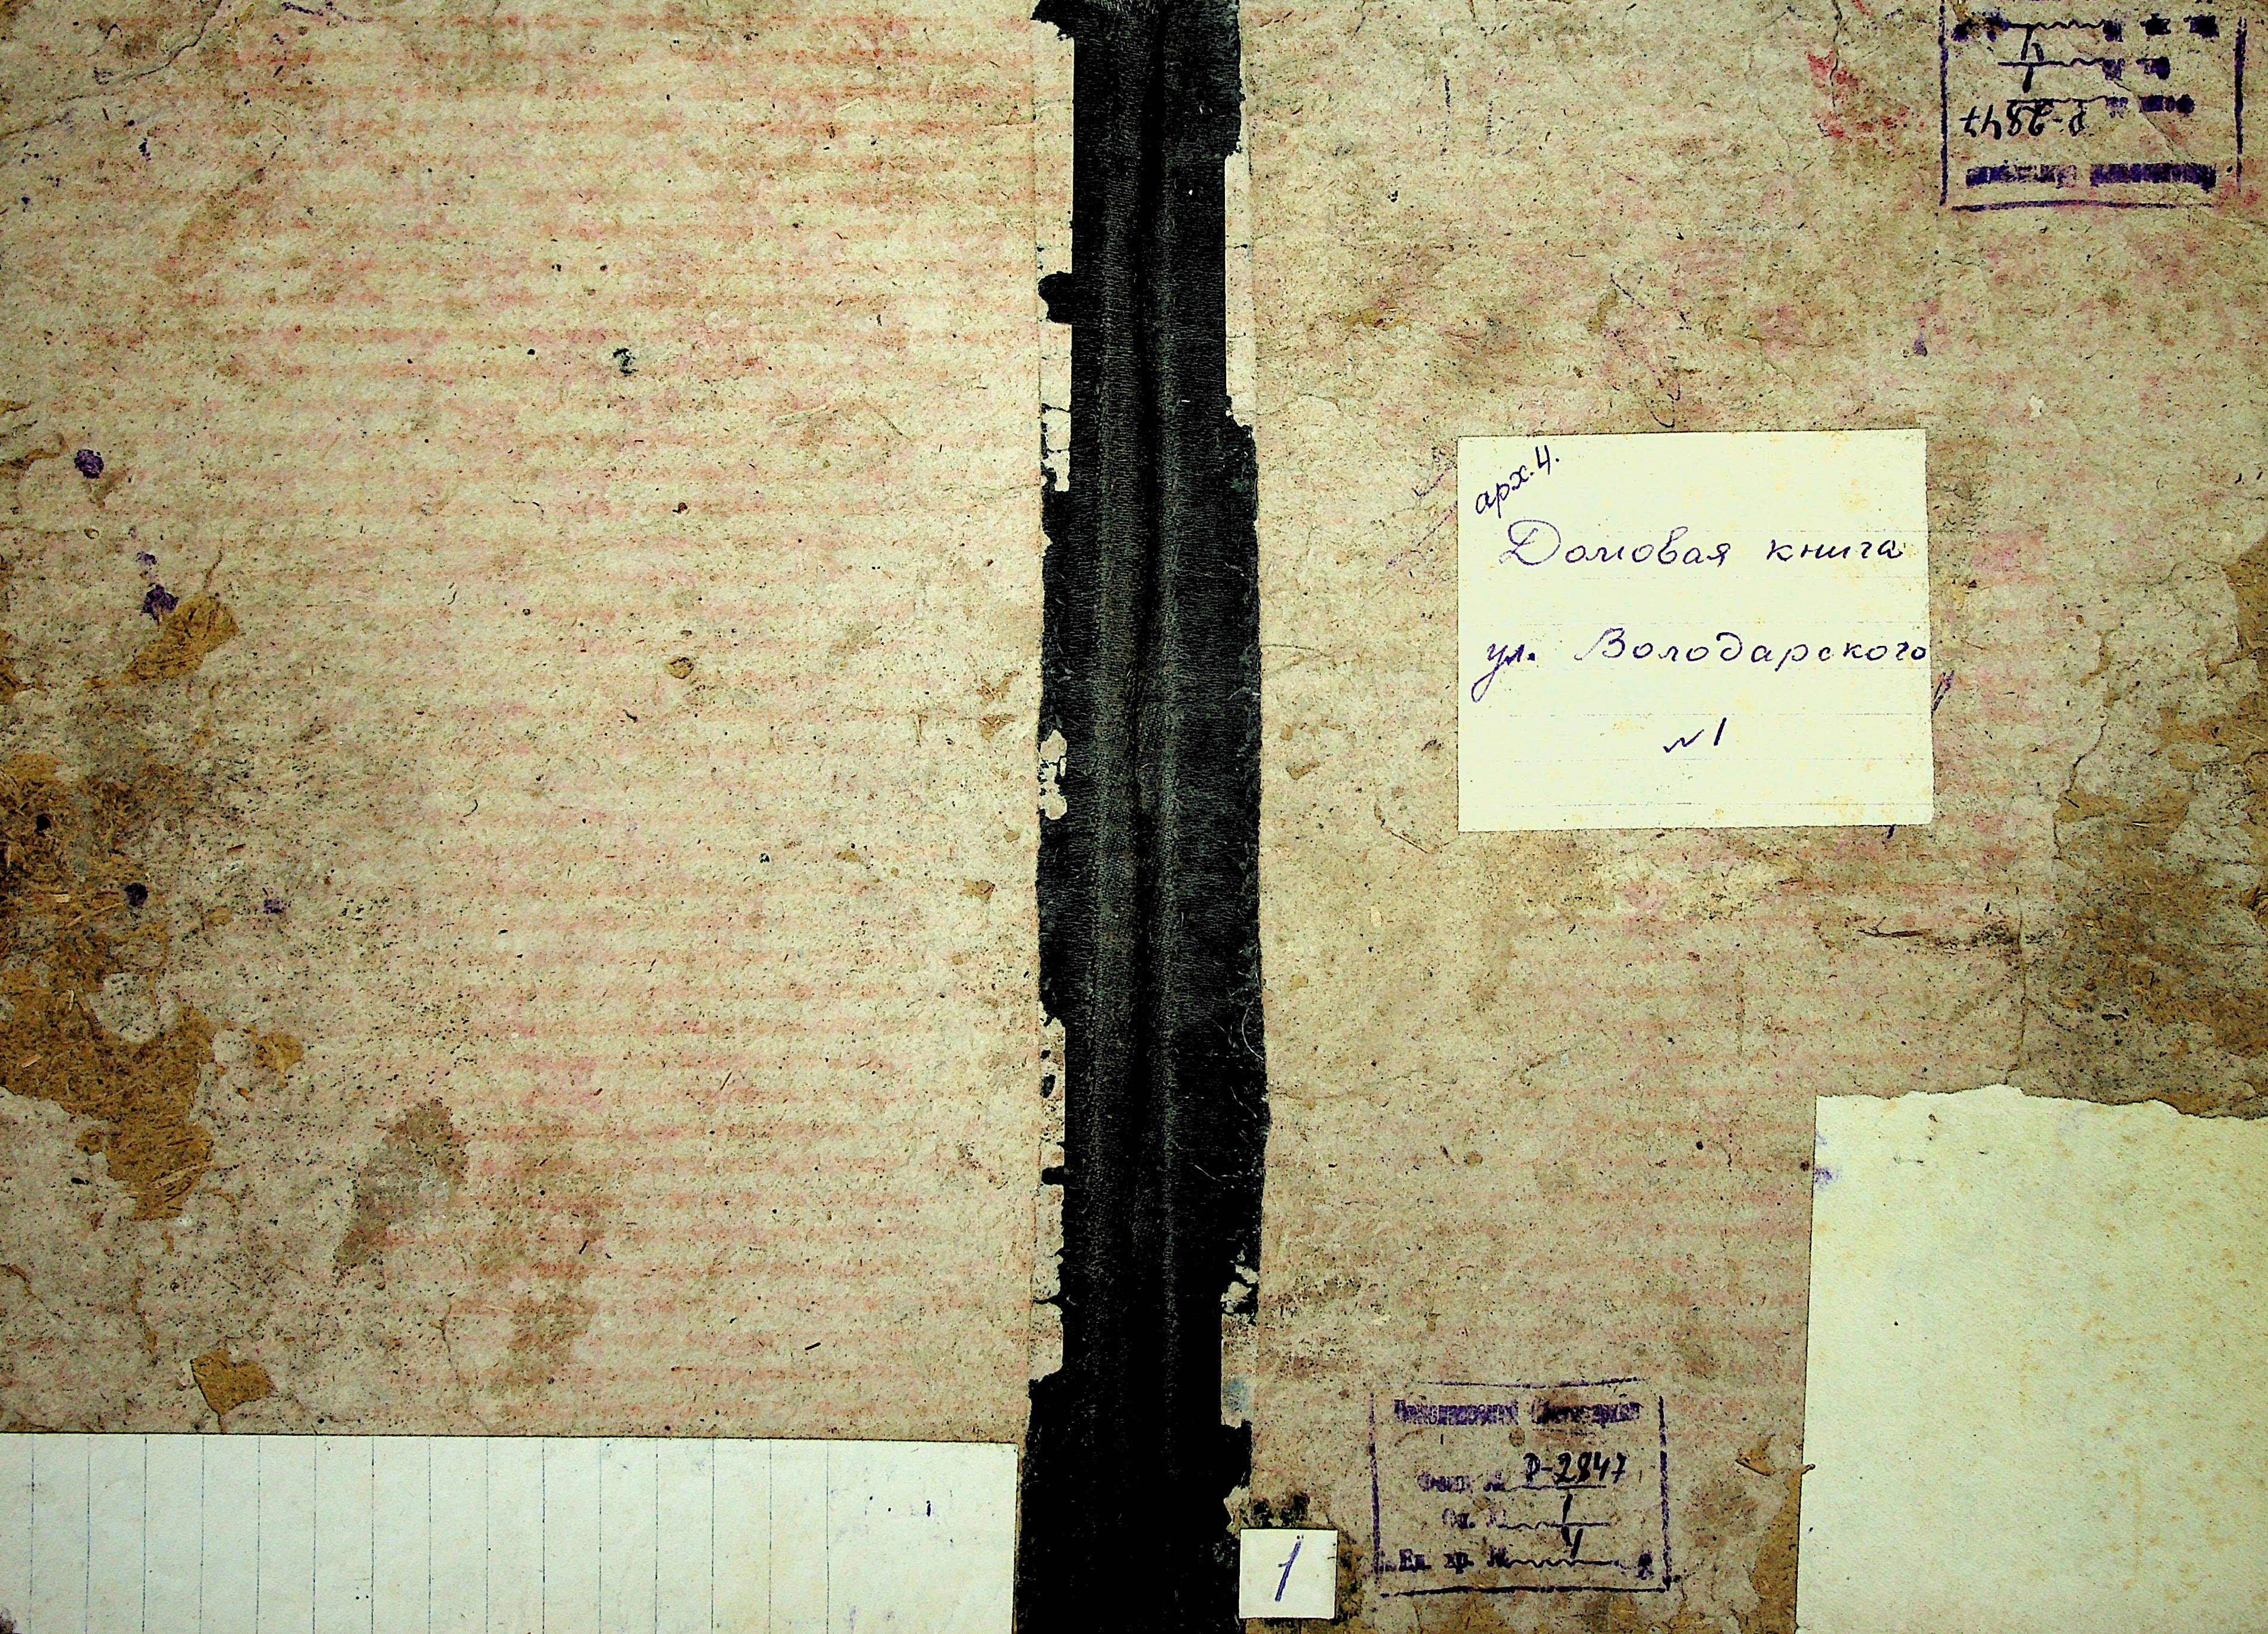 Р-2847
1
арх. 4.
Домовая книга
ул. Володарского
№1
Фонд № Р-2847
Оп. № 1
Ед. хр. № 4
1